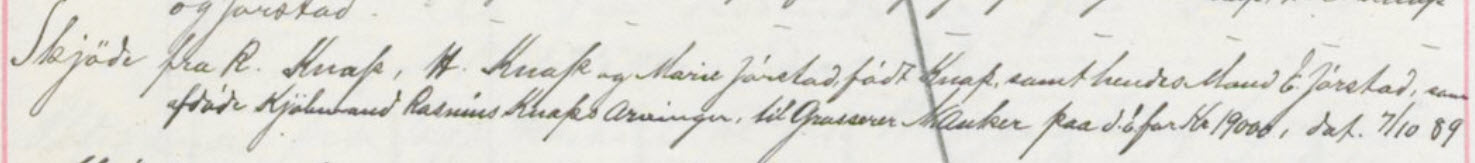 og Jørstad.
Skjøde fra R. Knap, H. Knap og Marie Jørstad, født Knap, samt hendes Mand E. Jørstad, som
afdøde Kjøbmand Rasmus Knaps Arvinger, til Grosserer M Anker paa d. E for Kr 19000, dat. 7/10 89